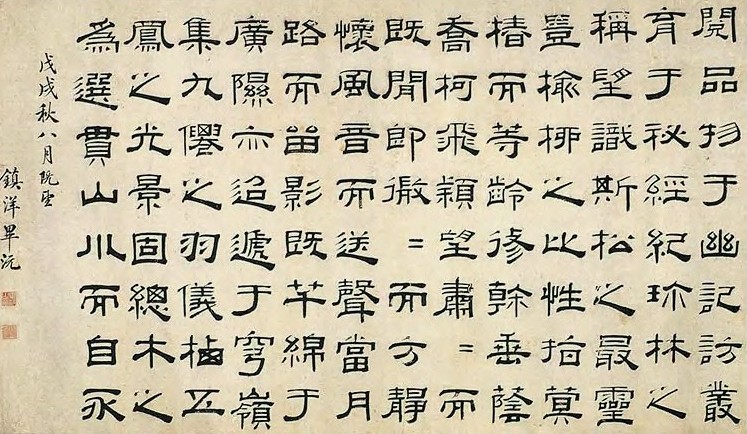 閱品物于幽記訪叢
育于秘經紀珎林之
稱望識斯松之最靈
豈榆柳之比性指蓂
椿而等齡修幹垂蔭
喬柯飛穎望肅=而
既閒即微=而方靜
懷風音而送聲當月
路而留影既芊綿于
廣隰亦迢遞于穹嶺
集九僊之羽儀栖五
鳳之光景固總木之
為選貫山川而自永
戊戌秋八月既望
鎮洋畢沅